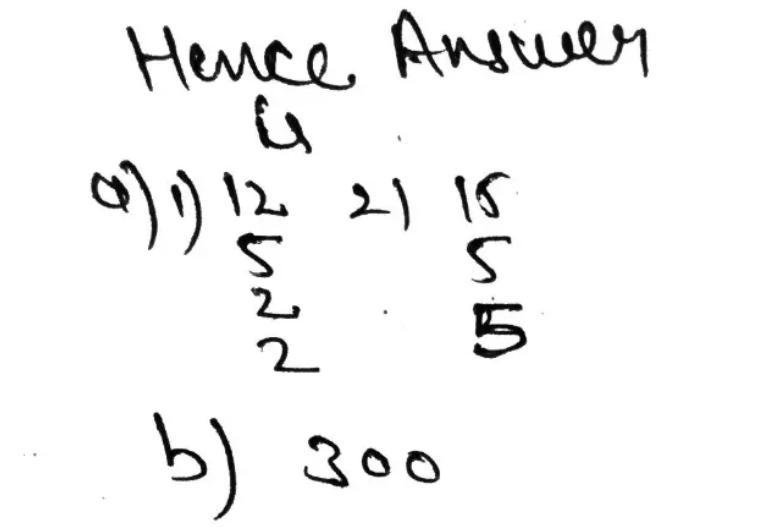 Hence Answer
is
a) 1) 12 2) 15
5 5
2 5
2
b) 300